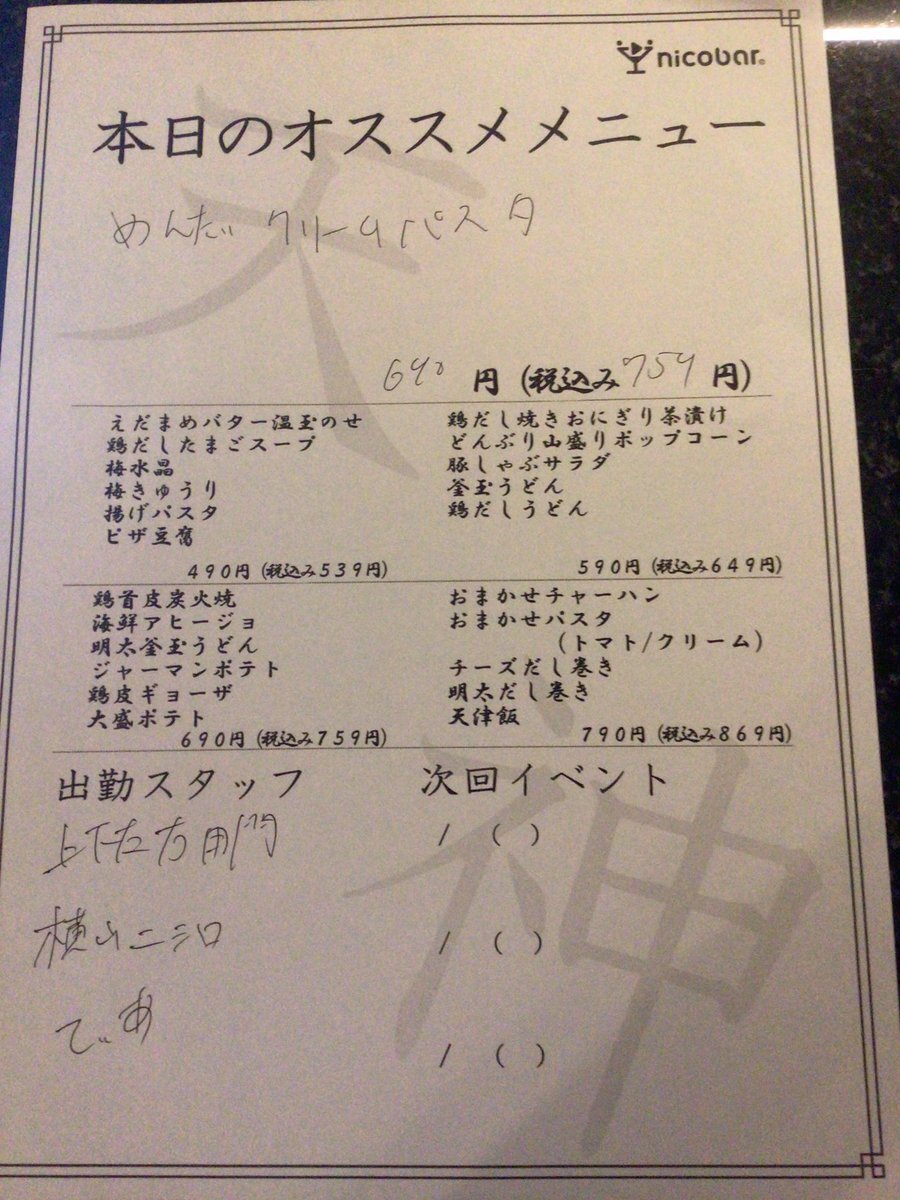 nicobar
本日のオススメメニュー
めんたいクリームパスタ
690円(税込み759円)
えだまめバター温玉のせ
鶏だしたまごスープ
梅水晶
梅きゅうり
揚げパスタ
ピザ豆腐
490円(税込み539円)
鶏だし焼きおにぎり茶漬け
どんぶり山盛りポップコーン
豚しゃぶサラダ
釜玉うどん
鶏だしうどん
590円(税込み649円)
鶏首皮炭火焼
海鮮アヒージョ
明太釜玉うどん
ジャーマンポテト
鶏皮ギョーザ
大盛ポテト
690円(税込み759円)
おまかせチャーハン
おまかせパスタ
(トマト/クリーム)
チーズだし巻き
明太だし巻き
天津飯
790円(税込み869円)
出勤スタッフ
上下左右用門
横山ニシロ
でぃあ
次回イベント
/ ( )
/ ( )
/ ( )
天神